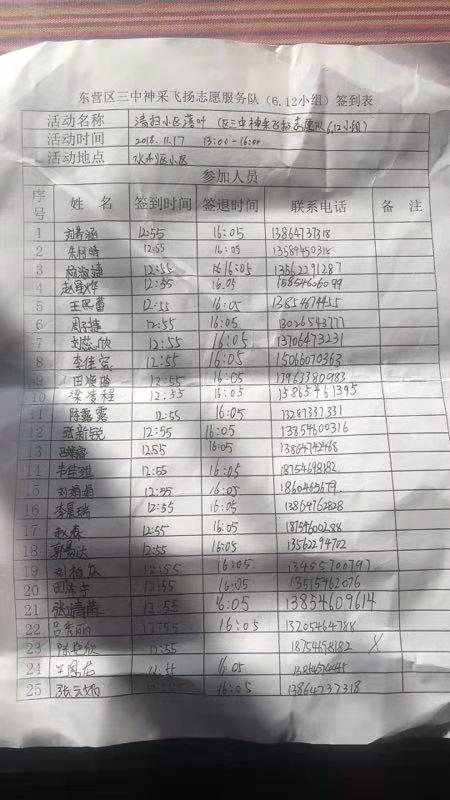 东营区三中神采飞扬志愿服务队（6.12小组）签到表
活动名称 清扫小区落叶（区三中神采飞扬志愿队6.12小组）
活动时间 2018.11.17 13:00-16:00
活动地点 小区
参加人员
序号 姓 名 签到时间 签退时间 联系电话 备 注
1 12:55 16:05 13864737318
2 朱柯晴 12:55 16:05 13589450318
3 12:55 16:05 13562291287
4 赵星烨 12:55 16.05 15854606099
5 王熙蕾 12:55 16:05 13854674455
6 周子捷 12:55 16:05 13026543777
7 刘慈欣 12:55 16:05 13706473231
8 李佳宸 12:55 16:05 15066070363
9 田顺 12:55 16:05 13963380983
10 12:55 16:05 15865461395
11 陈露露 12:55 16:05 13287337331
12 张新锐 12:55 16:05 13854600316
13 12:55 16:05 13864742468
14 12:55 16:05 18754698182
15 12:55 16:05 1860465679
16 李晨瑞 12:55 16:05 13864762828
17 赵森 12:55 16:05 18754600288
18 郭易达 12:55 16:05 13562294702
19 12:55 16:05 13455700797
20 12:55 16:05 13515462076
21 张清萍 12:55 16:05 13854609614
22 吕秀丽 12:55 16:05 13205464788
23 12:55 18754698182 X
24 16:05
25 12:55 16:05 13864737318